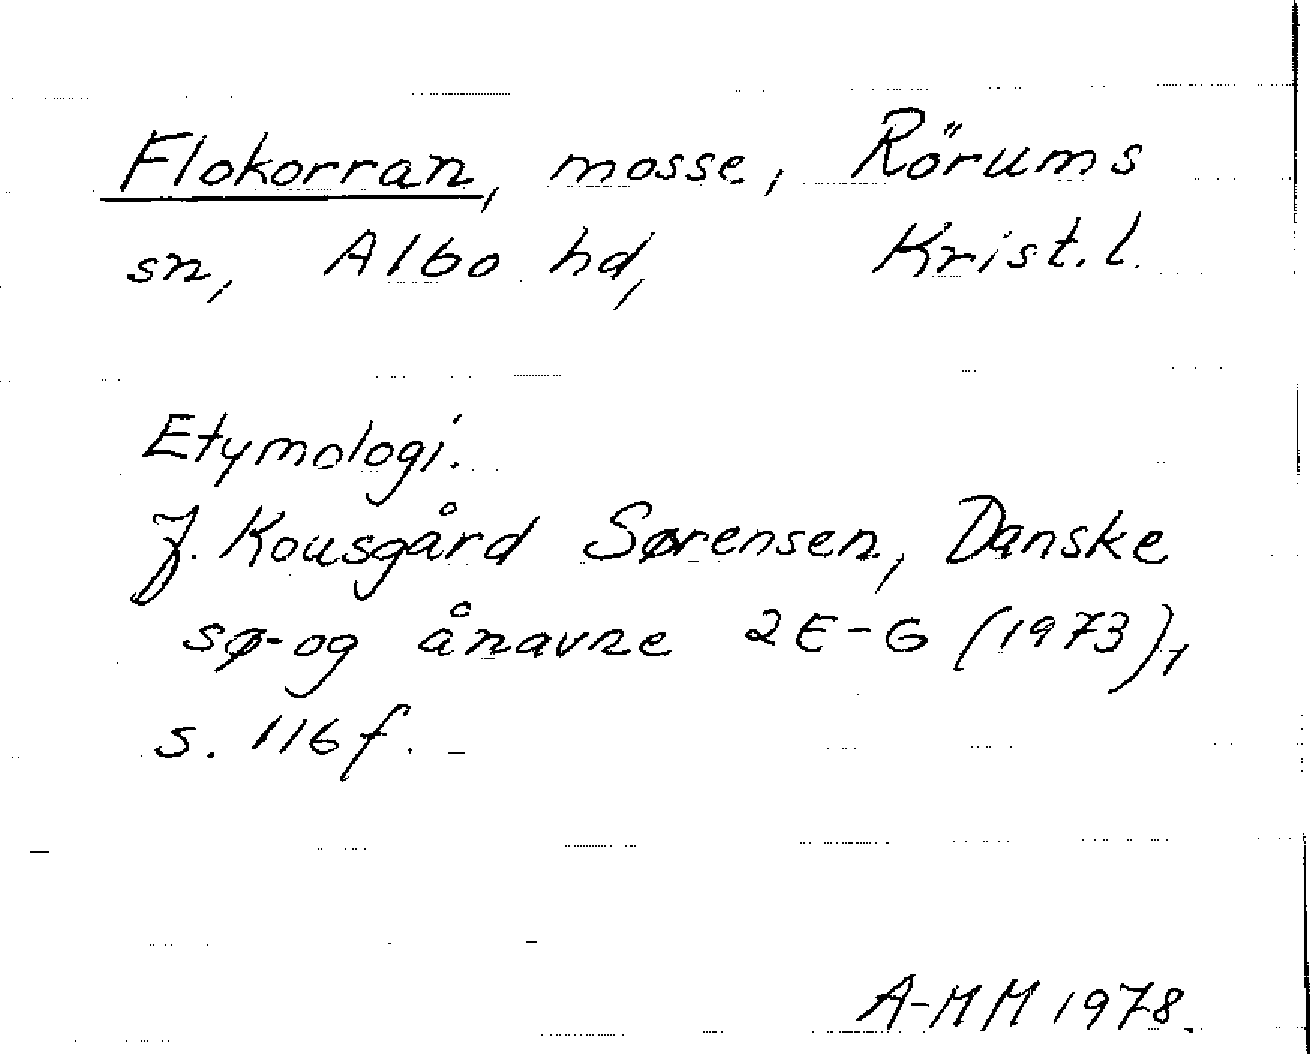 Flokorran, mosse, Rörums
sn, Albo hd, Krist.l.
Etymologi.
J. Kousgård Sørensen, Danske
sø- og ånavne 2 E-G (1973),
s. 116 f. -
A-MM 1978.